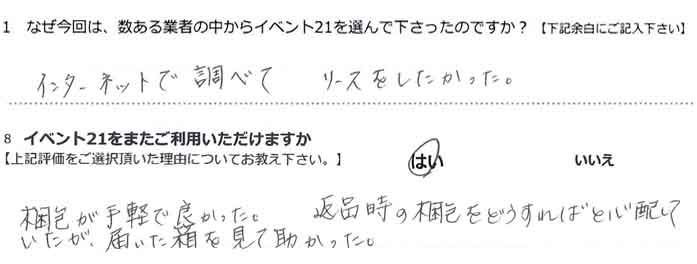 1 なぜ今回は、数ある業者の中からイベント21を選んで下さったのですか？【下記余白にご記入下さい】
インターネットで調べて リースをしたかった。
8 イベント21をまたご利用いただけますか
【上記評価をご選択頂いた理由についてお教え下さい。】 はい いいえ
梱包が手軽で良かった。 返品時の梱包をどうすればと心配して
いたが、届いた箱を見て助かった。